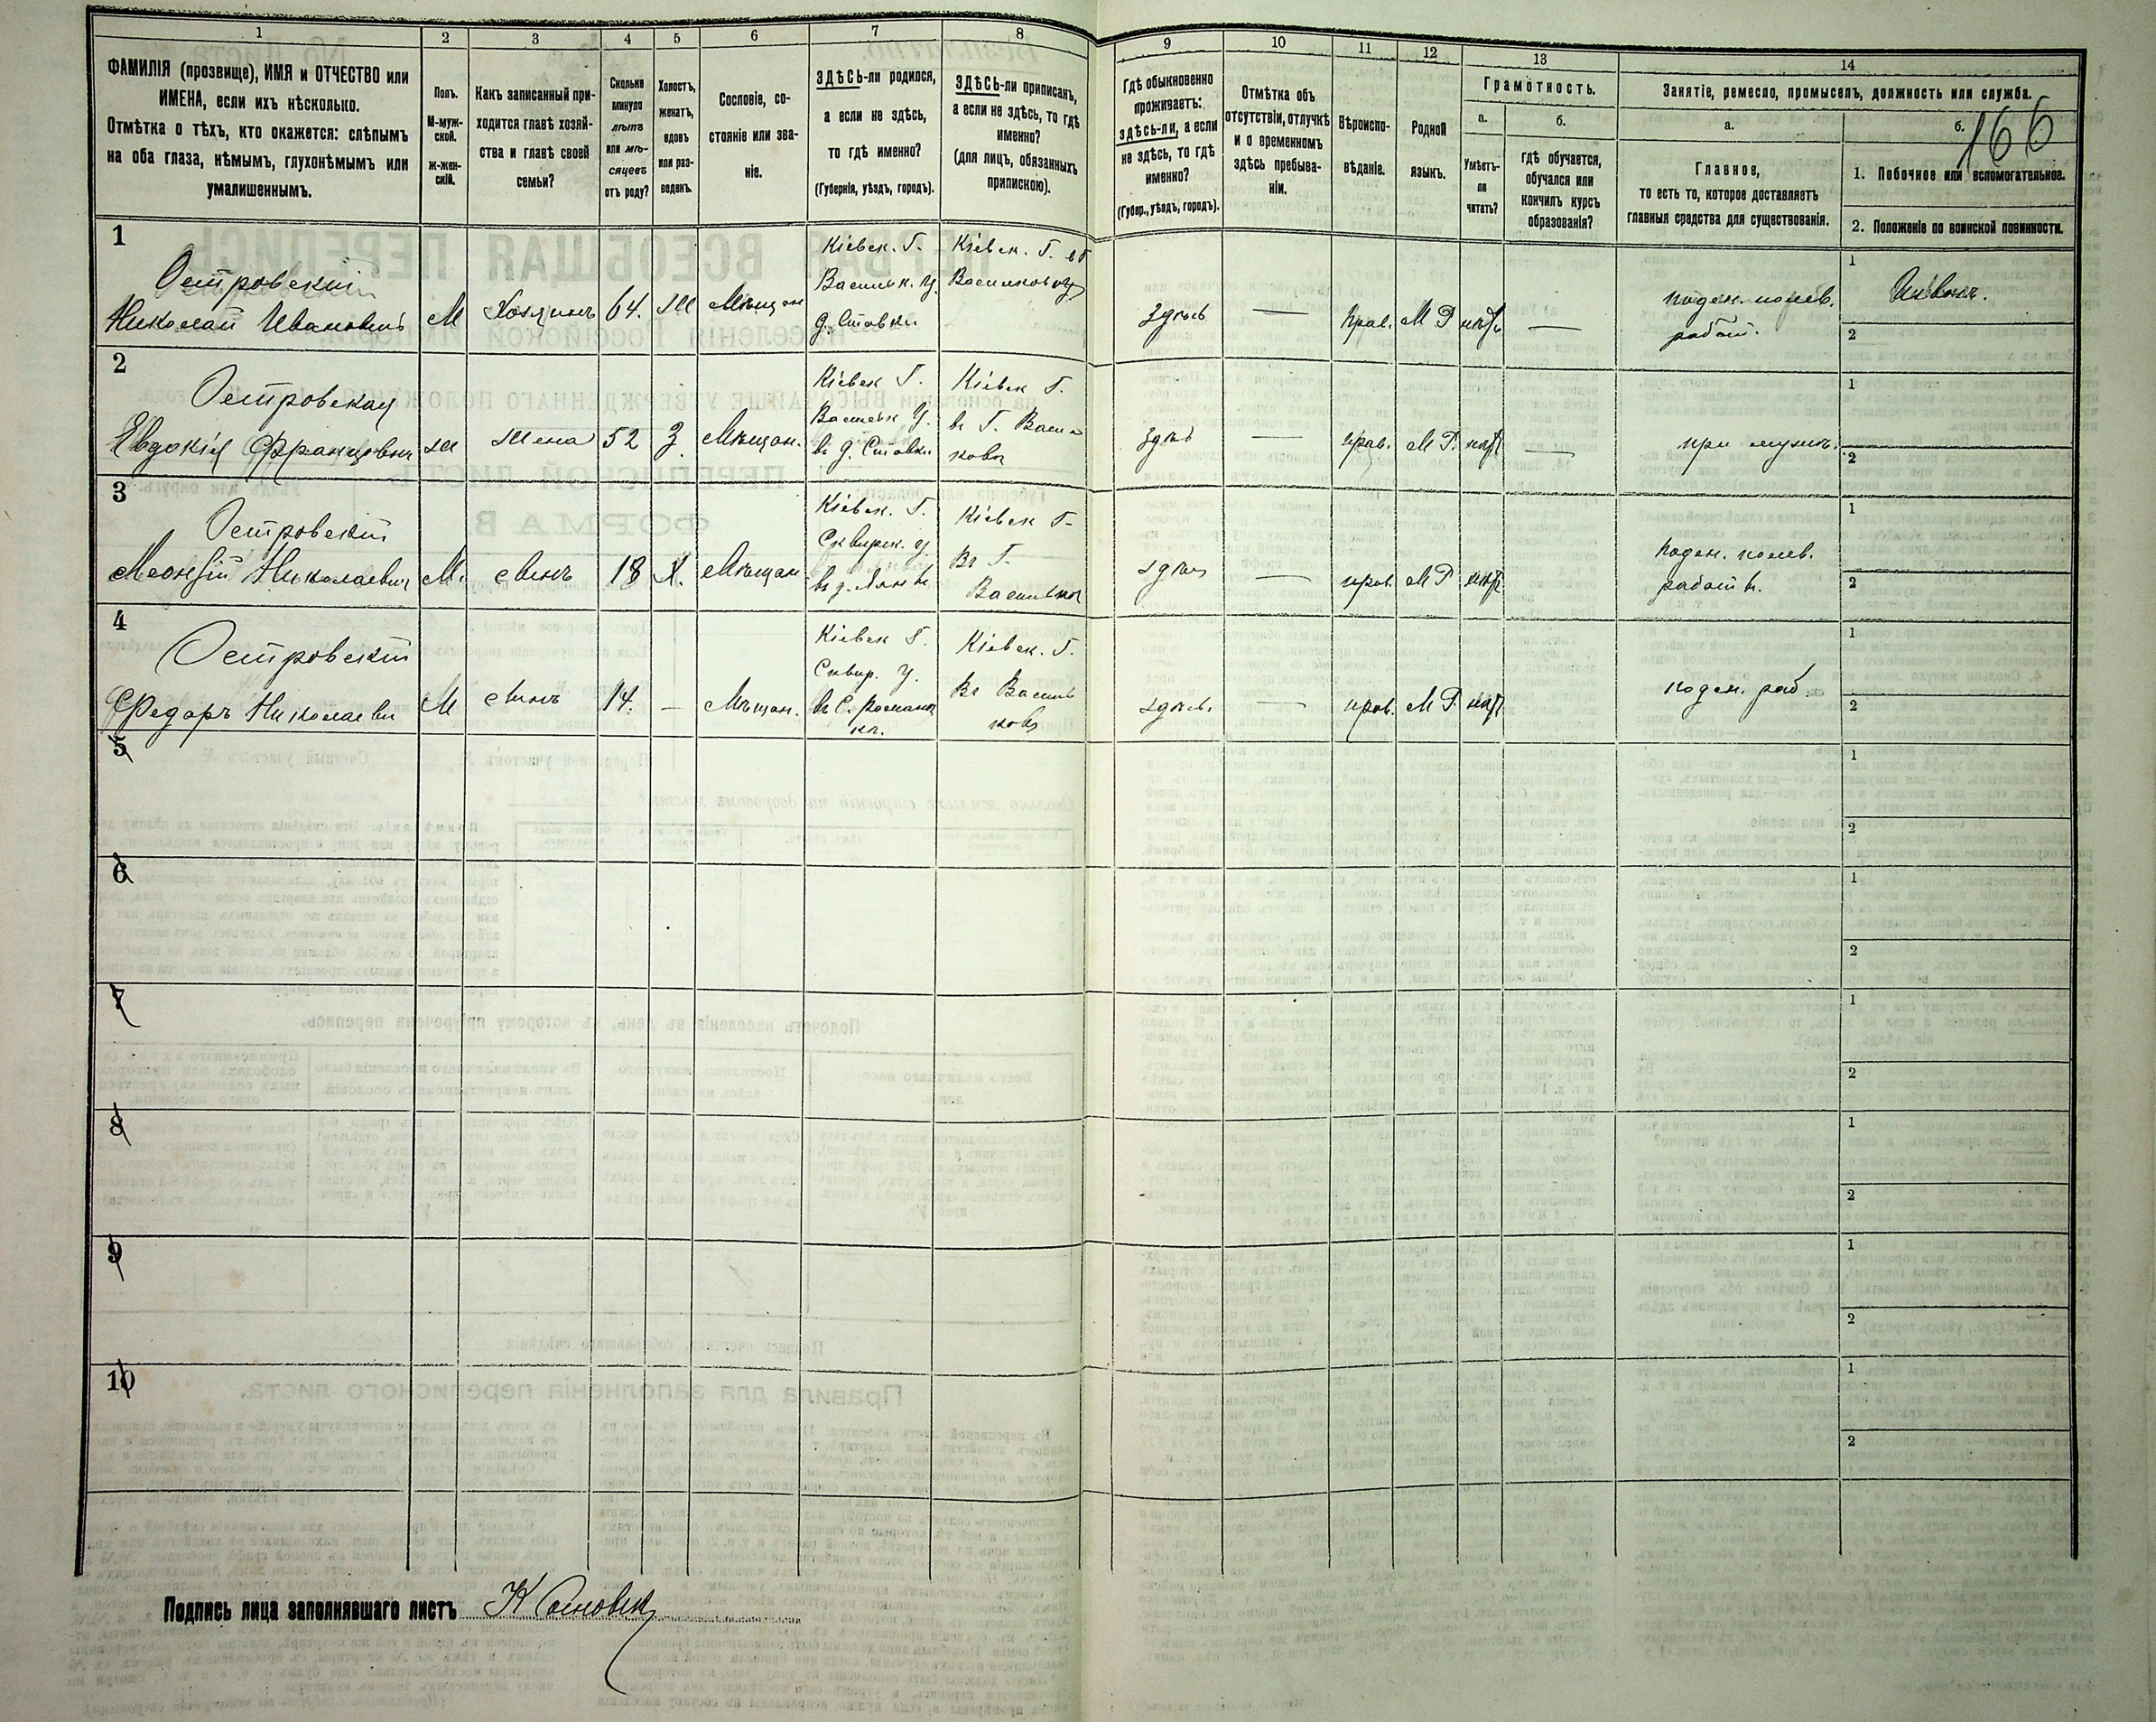 1 2 3 4 5 6 7 8 9 10 11 12 13 14
ФАМИЛІЯ (прозвище), ИМЯ и ОТЧЕСТВО или
ИМЕНА, если ихъ нѣсколько.
Отмѣтка о тѣхъ, кто окажется: слѣпымъ
на оба глаза, нѣмымъ, глухонѣмымъ или
умалишеннымъ.
Полъ.
М-муж-
ской.
ж-жен-
скій.
Какъ записанный при-
ходится главѣ хозяй-
ства и главѣ своей
семьи?
Сколько
минуло
лѣтъ
или мѣ-
сяцевъ
отъ роду?
Холостъ,
женатъ,
вдовъ
или раз-
веденъ.
Сословіе, со-
стояніе или зва-
ніе.
ЗДѢСЬ-ли родился,
а если не здѣсь,
то гдѣ именно?
(Губернія, уѣздъ, городъ).
ЗДѢСЬ-ли приписанъ,
а если не здѣсь, то гдѣ
именно?
(для лицъ, обязанныхъ
припискою).
Гдѣ обыкновенно
проживаетъ:
здѣсь-ли, а если
не здѣсь, то гдѣ
именно?
(Губер., уѣздъ, городъ).
Отмѣтка объ
отсутствіи, отлучкѣ
и о временномъ
здѣсь пребыва-
ніи.
Вѣроиспо-
вѣданіе.
Родной
языкъ.
Грамотность.
а.
Умѣетъ-
ли
читать?
б.
гдѣ обучается,
обучался или
кончилъ курсъ
образованія?
Занятіе, ремесло, промыселъ, должность или служба.
а.
Главное,
то есть то, которое доставляетъ
главныя средства для существованія.
б.
166
1. Побочное или вспомогательное.
2. Положеніе по воинской повинности.
1
Островскій
Николай Ивановичъ
М
Хозяинъ
64.
Ж
Мѣщан
Кіевск. Г.
Васильк. У.
д. Ставки
Кіевск. Г. въ Г.
Васильковѣ
здѣсь
—
прав.
М Р
нѣтъ
—
поден. полев.
работ.
1
2
2
Островская
Евдокія Францовна
ж
жена
52
З.
Мѣщан.
Кіевск Г.
Васильк У.
въ д. Ставки
Кіевск Г.
въ Г. Васил
ковѣ
здѣсь
—
прав.
М Р.
нѣтъ
—
при мужѣ.
1
2
3
Островскій
Леонтій Николаевич
М.
сынъ
18
Х.
Мѣщан
Кіевск. Г.
Сквирск. У.
Кіевск Г.
Въ Г.
Васильков
здѣсь
—
прав.
М Р
нѣт
поден. полев.
работн.
1
2
4
Островскій
Федоръ Николаеви
М
сынъ
14.
—
Мѣщан.
Кіевск Г.
Сквир. У.
въ С. Романов
кѣ.
Кіевск. Г.
Въ Василь
ковѣ
здѣсь.
—
прав.
М Р.
нѣт
поден. раб.
1
2
5
1
2
6
1
2
7
1
2
8
1
2
9
1
2
10
1
2
Подпись лица заполнявшаго листъ